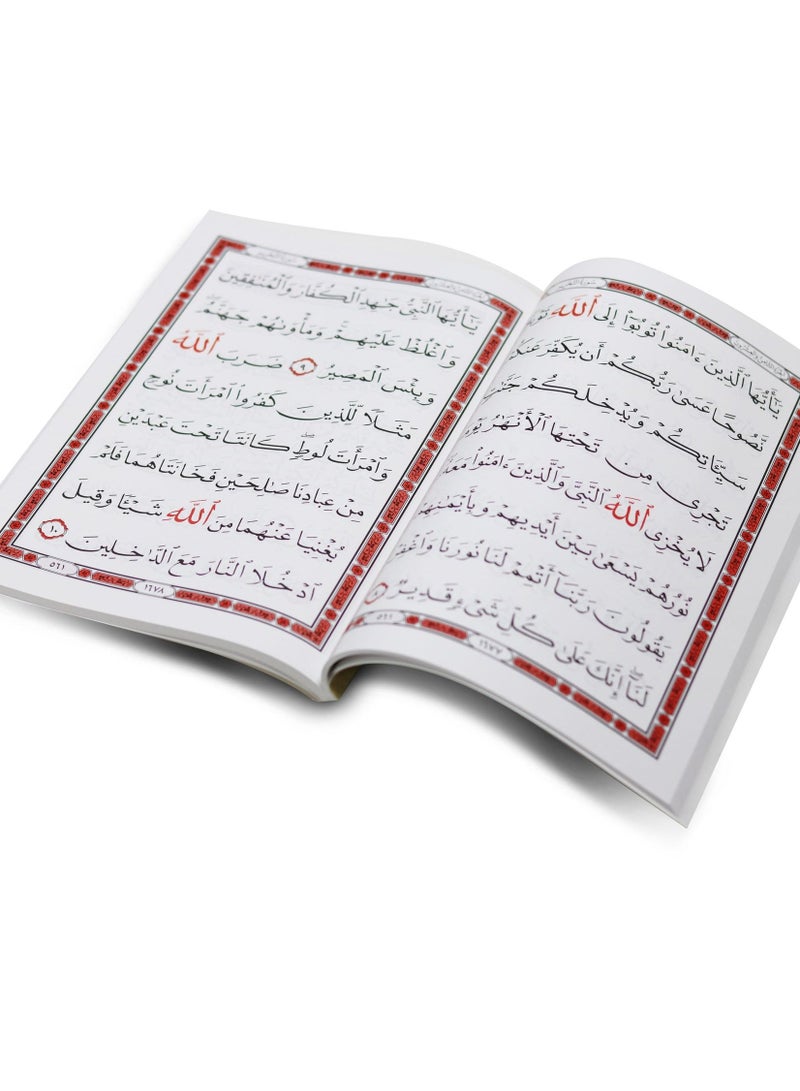 سورة التحريم
يَٰٓأَيُّهَا ٱلَّذِينَ ءَامَنُوا۟ تُوبُوٓا۟ إِلَى ٱللَّهِ
نَّصُوحًا عَسَىٰ رَبُّكُمْ أَن يُكَفِّرَ
سَيِّـَٔاتِكُمْ وَيُدْخِلَكُمْ
تَجْرِى مِن تَحْتِهَا ٱلْأَنْهَٰرُ
لَا يُخْزِى ٱللَّهُ ٱلنَّبِىَّ وَٱلَّذِينَ ءَامَنُوا۟
نُورُهُمْ يَسْعَىٰ بَيْنَ أَيْدِيهِمْ
يَقُولُونَ رَبَّنَآ أَتْمِمْ لَنَا نُورَنَا
لَنَآ ۖ إِنَّكَ عَلَىٰ كُلِّ شَىْءٍ قَدِيرٌ ٨
٥٦١ ١٦٧٧
سورة التحريم
يَٰٓأَيُّهَا ٱلنَّبِىُّ جَٰهِدِ ٱلْكُفَّارَ وَٱلْمُنَٰفِقِينَ
وَٱغْلُظْ عَلَيْهِمْ ۚ وَمَأْوَىٰهُمْ جَهَنَّمُ ۖ
وَبِئْسَ ٱلْمَصِيرُ ٩ ضَرَبَ ٱللَّهُ
مَثَلًا لِّلَّذِينَ كَفَرُوا۟ ٱمْرَأَتَ نُوحٍ
وَٱمْرَأَتَ لُوطٍ ۖ كَانَتَا تَحْتَ عَبْدَيْنِ
مِنْ عِبَادِنَا صَٰلِحَيْنِ فَخَانَتَاهُمَا فَلَمْ
يُغْنِيَا عَنْهُمَا مِنَ ٱللَّهِ شَيْـًٔا وَقِيلَ
ٱدْخُلَا ٱلنَّارَ مَعَ ٱلدَّٰخِلِينَ ١٠
٥٦١ ١٦٧٨